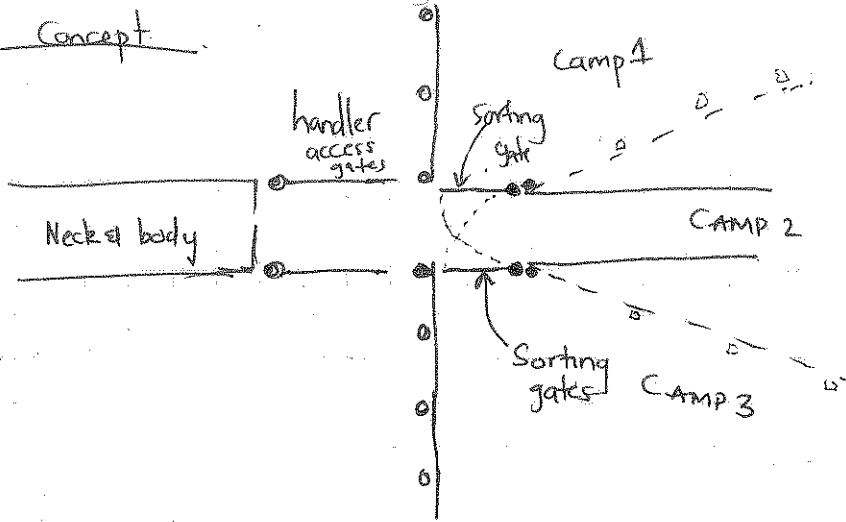 Concept
Camp 1
handler
access
gates
Sorting
gate
Neck & body
CAMP 2
Sorting
gates
CAMP 3